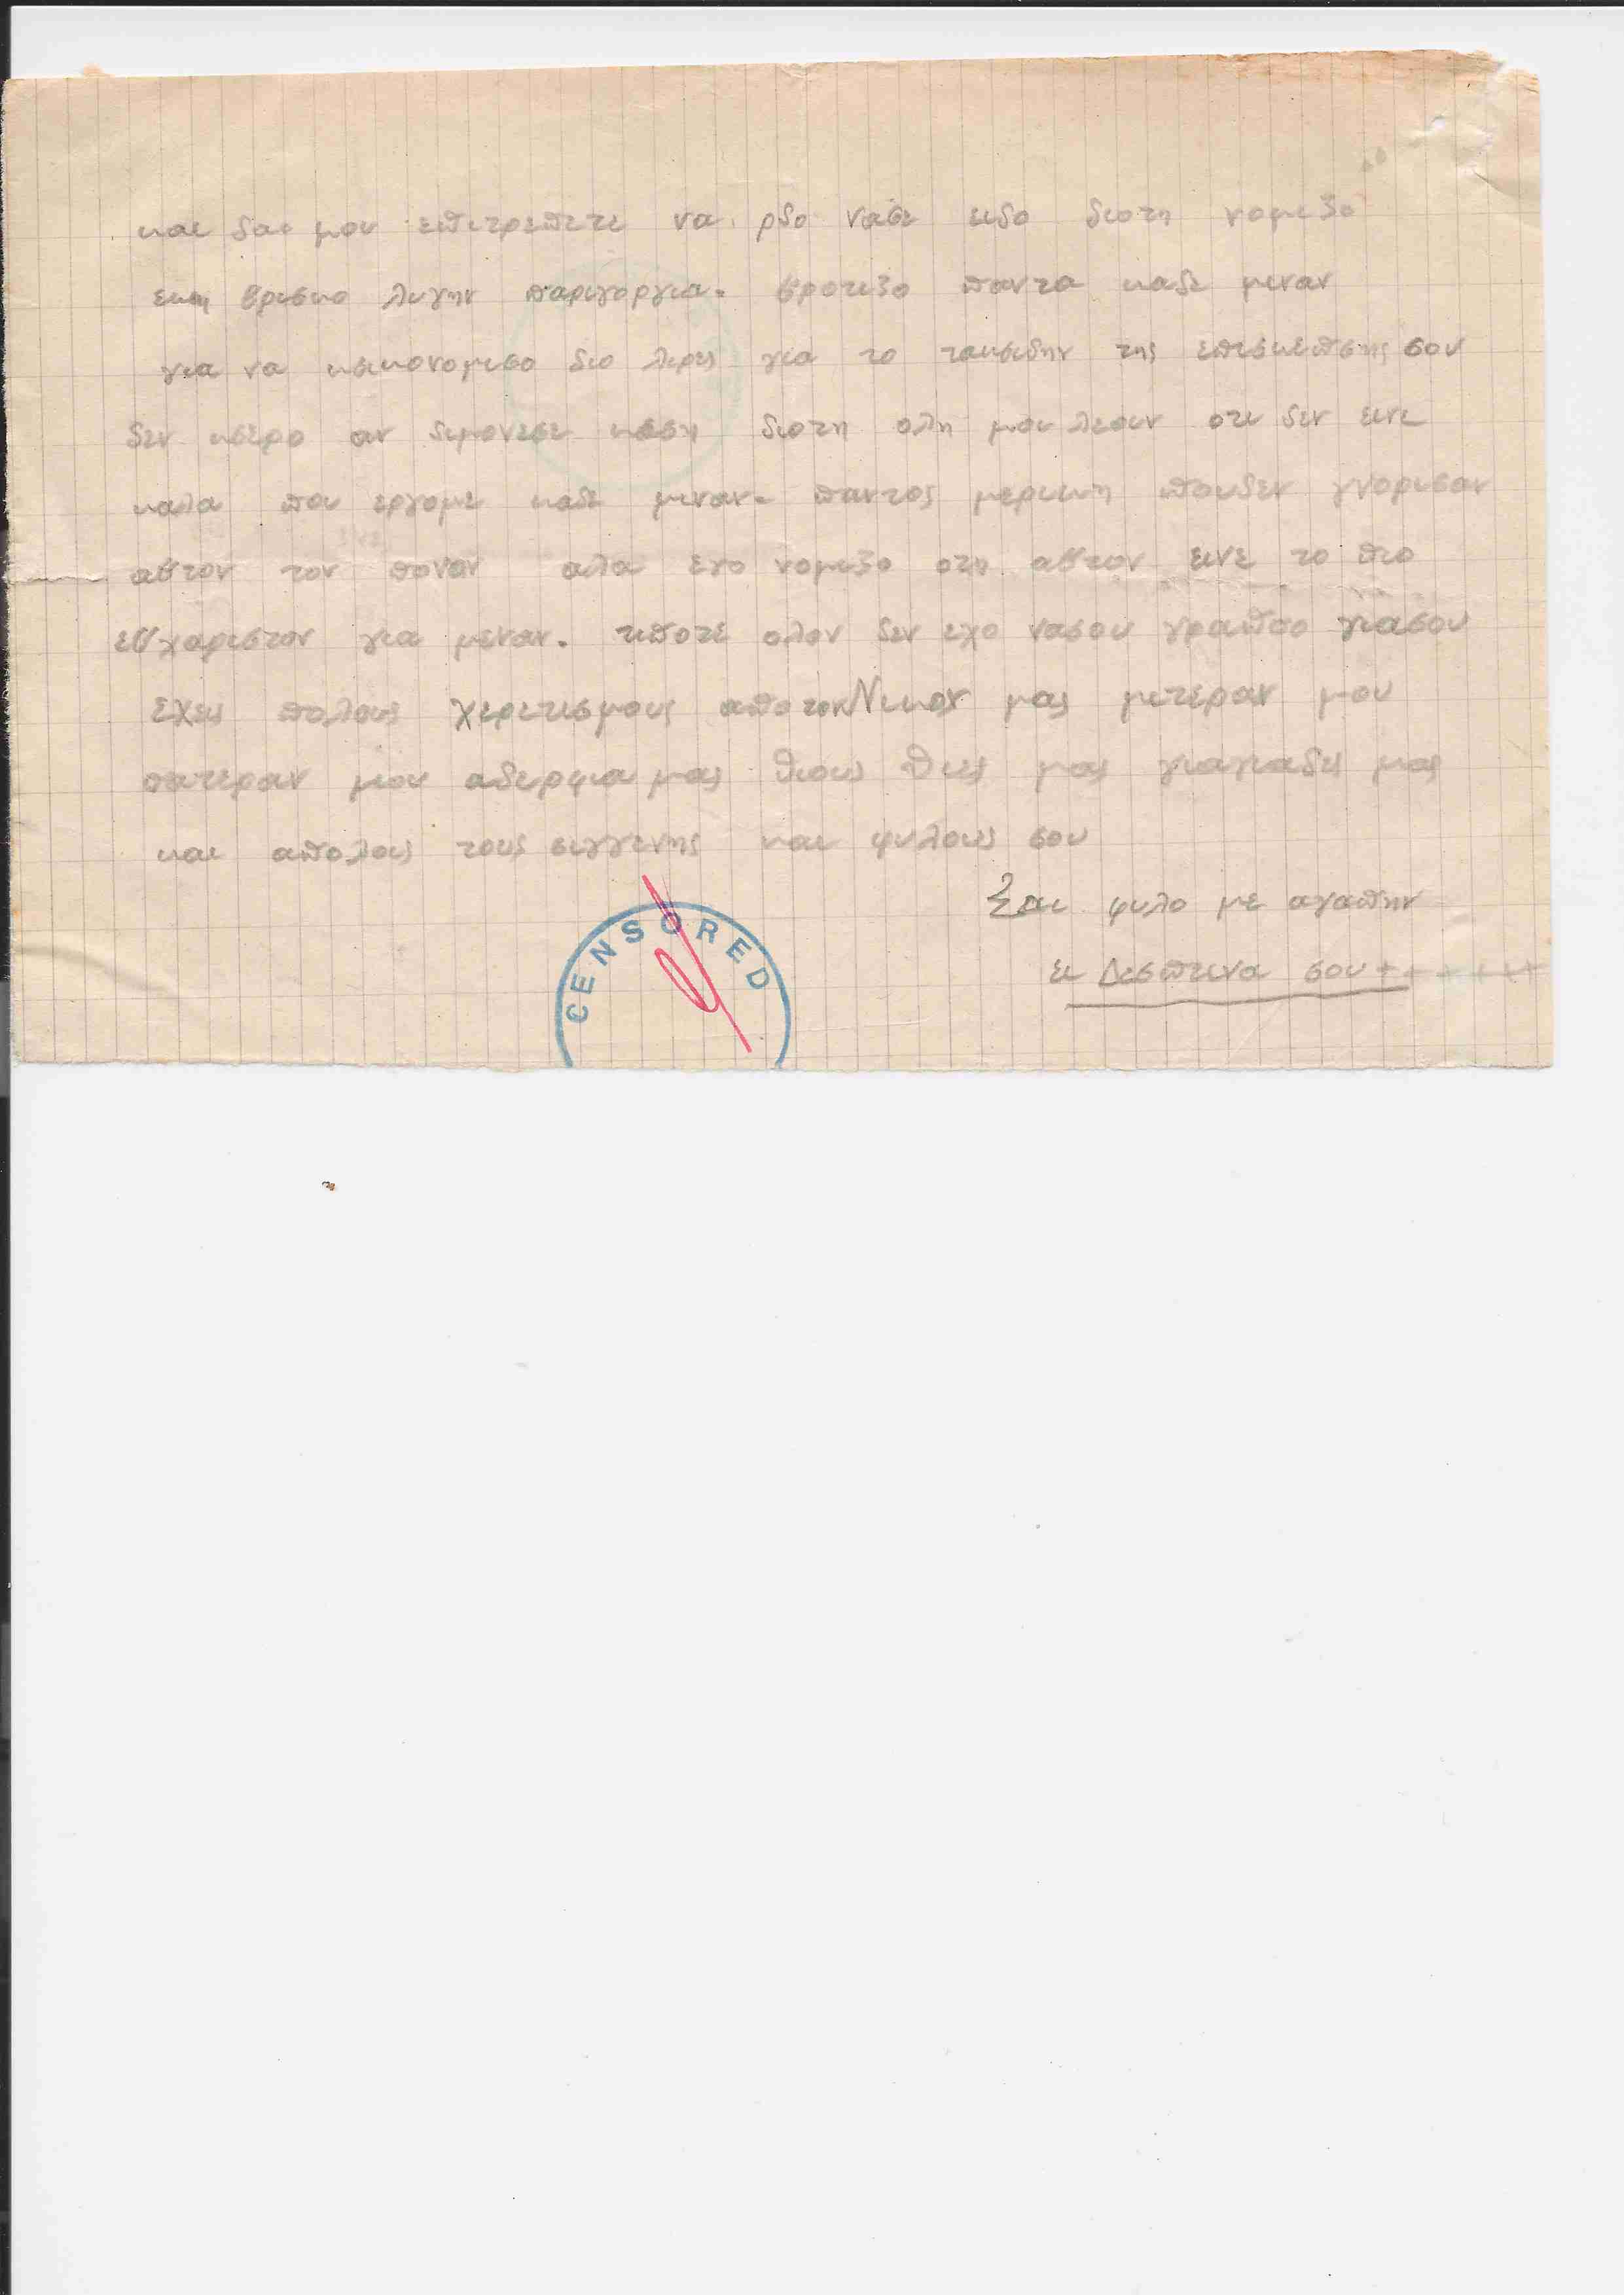 και δαι μου επιτρεπετε να ρδο νασε ειδο διοτη νομιζο
εκη βρισκο λιγην παριγοργια. φροτιζο παντα καδε μιναν
για να κσικονομισο διο λιρες για το τακσιδην της επισκεπσης σου
δεν κσερο αν διμονεσε κεση διοτη ολη μου λεουν οτι δεν εινε
καλα που ερχομε καδε μιναν. παντος μερικη που δεν γνορισαν
αβτον τον πονον αλα εγο νομιζο οτη αβτον εινε το πιο
εβχαριστον για μεναν. τιποτε αλον δεν εχο νασου γραπσο γιασου
Εχεις πολους χερετισμους απο τον Νικον μας μιτεραν μου
πατεραν μου αδερφια μας θιους θιες μας γιαγιαδες μας
και απολους τους σιγγενης και φιλους σου
Σαι φιλο με αγαπην
ει Δεσπτινα σου + + + + +
CENSORED